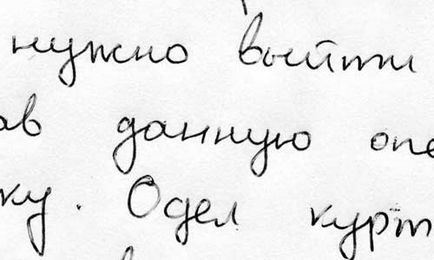 нужно выйти
ав данную опе
ку. Одел курт